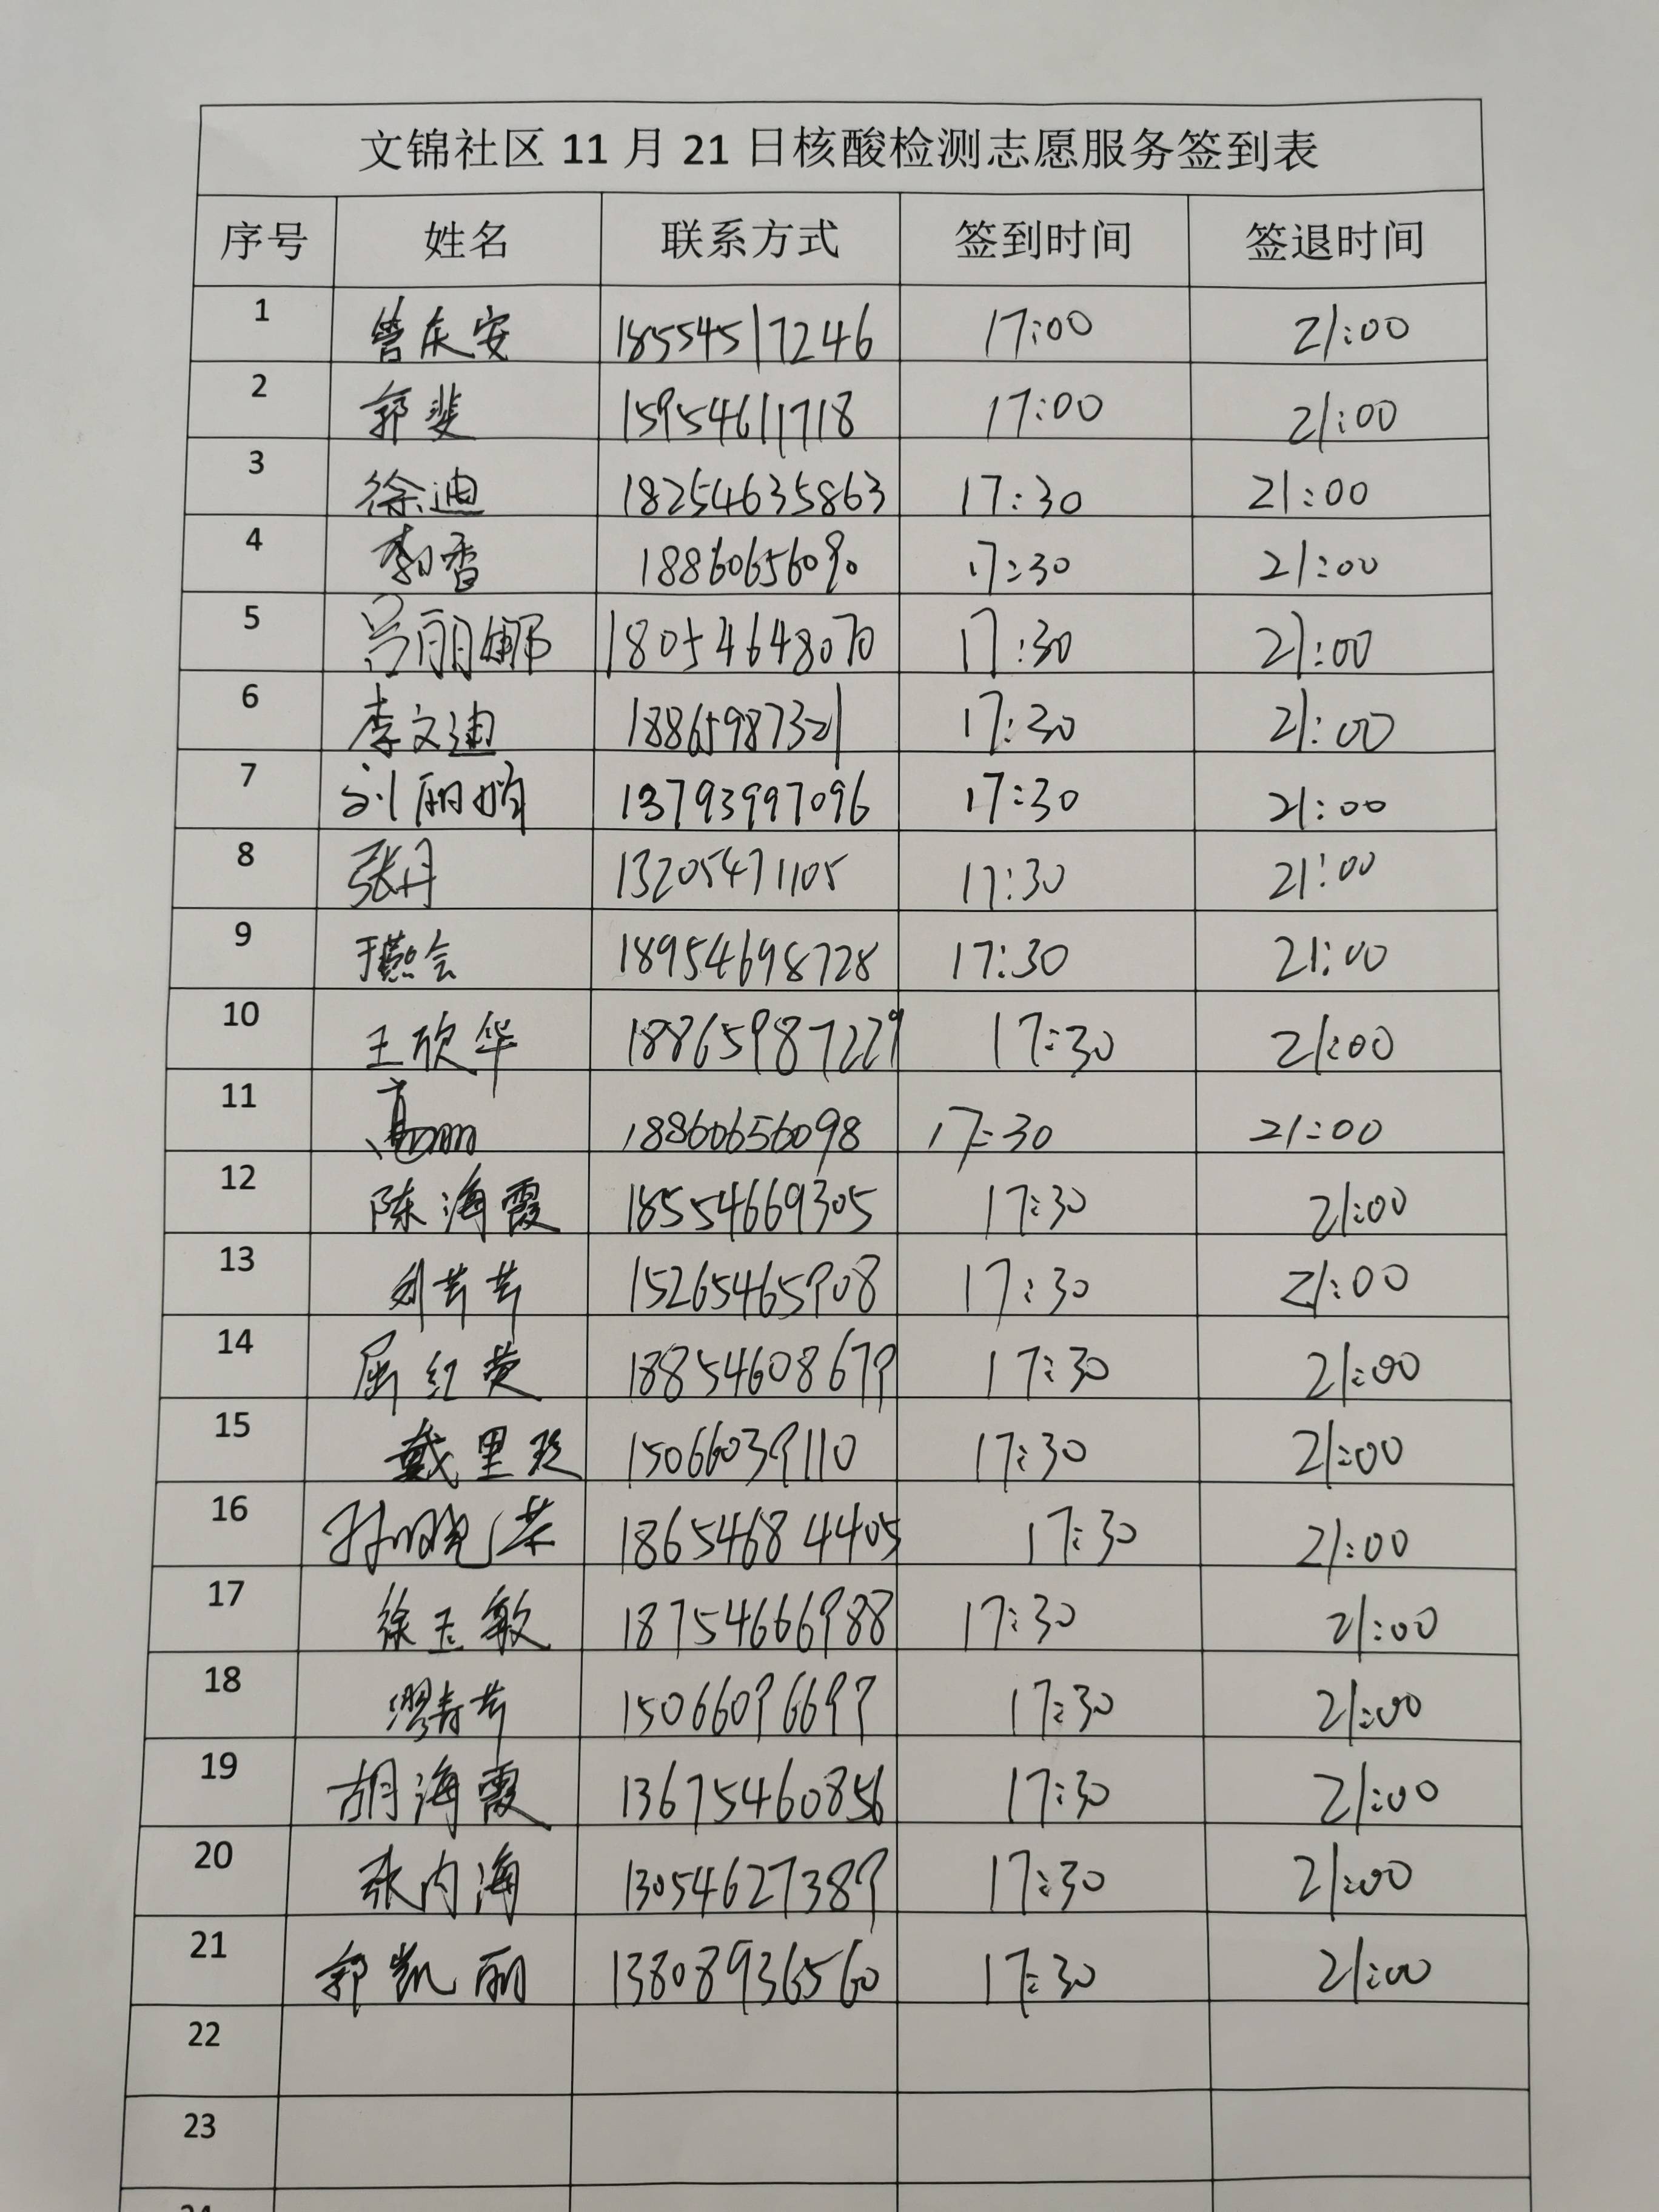 文锦社区11月21日核酸检测志愿服务签到表
序号 姓名 联系方式 签到时间 签退时间
1 曾庆安 18554517246 17:00 21:00
2 郭斐 15954611718 17:00 21:00
3 徐迪 18254635863 17:30 21:00
4 17:30 21:00
5 吕丽娜 18054648070 17:30 21:00
6 李文迪 18865987321 17:30 21:00
7 刘丽娟 13793997096 17:30 21:00
8 张丹 13205471105 17:30 21:00
9 于燕会 18954698728 17:30 21:00
10 王欣华 18865987229 17:30 21:00
11 高 18860656098 17:30 21:00
12 陈海霞 18554669305 17:30 21:00
13 刘芳芳 15265465908 17:30 21:00
14 屈红英 18854608679 17:30 21:00
15 戴里 15066039110 17:30 21:00
16 孙晓荣 18654684405 17:30 21:00
17 徐玉敏 18754666988 17:30 21:00
18 缪春芳 15066096699 17:30 21:00
19 胡海霞 13675460856 17:30 21:00
20 张内海 13054627389 17:30 21:00
21 郭凯丽 13808936560 17:30 21:00
22
23